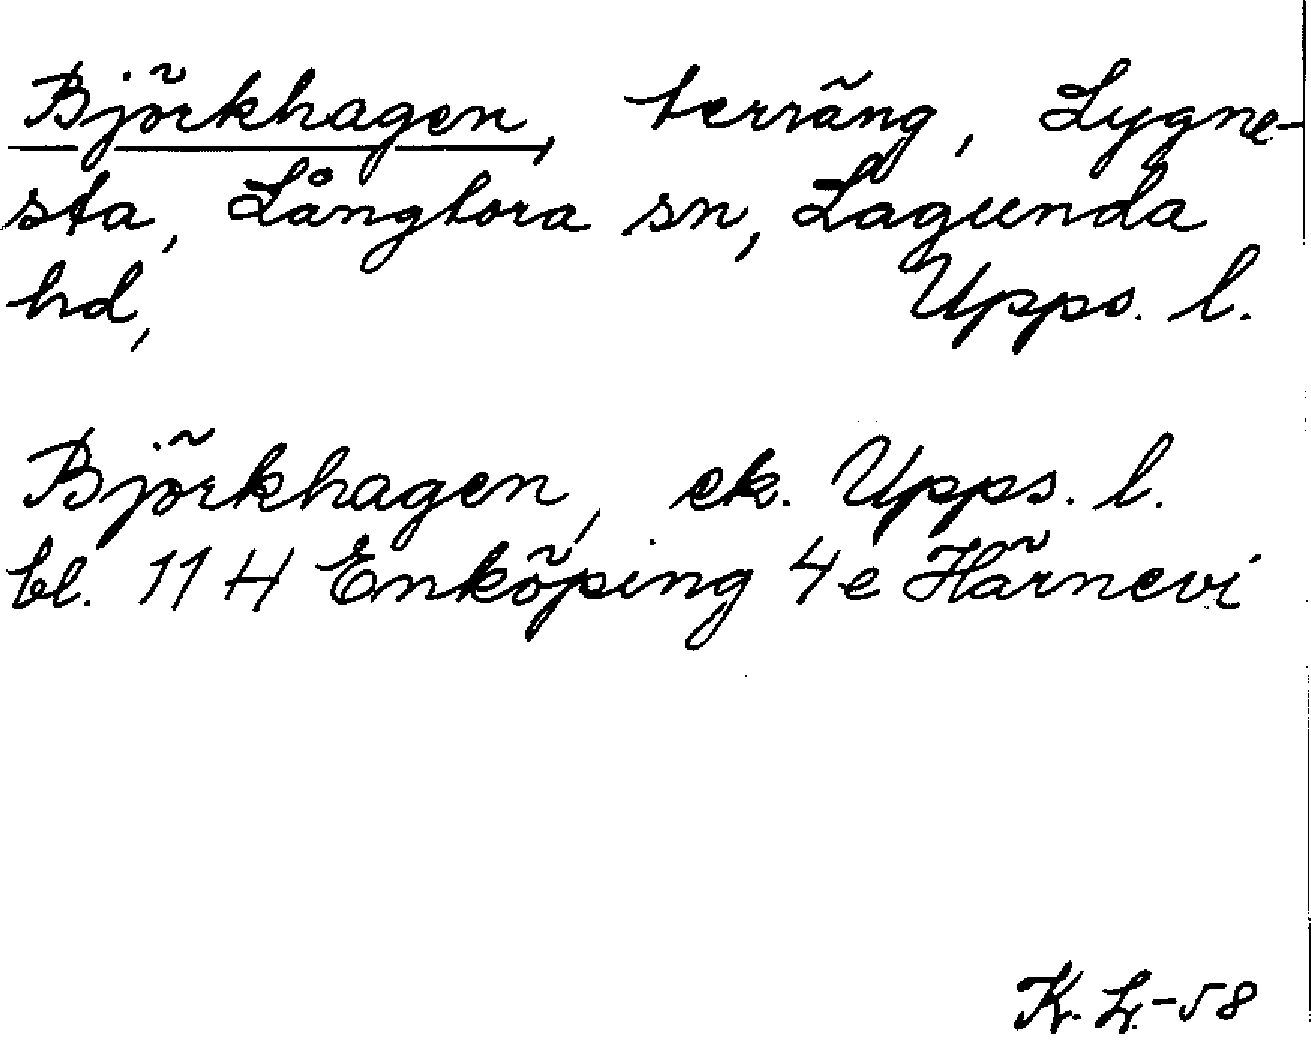 Björkhagen, terräng, Lygne-
sta, Långtora sn, Lagunda
hd, Upps. l.
Björkhagen, ek. Upps. l.
bl. 11 H Enköping 4e Härnevi
K. L.-58